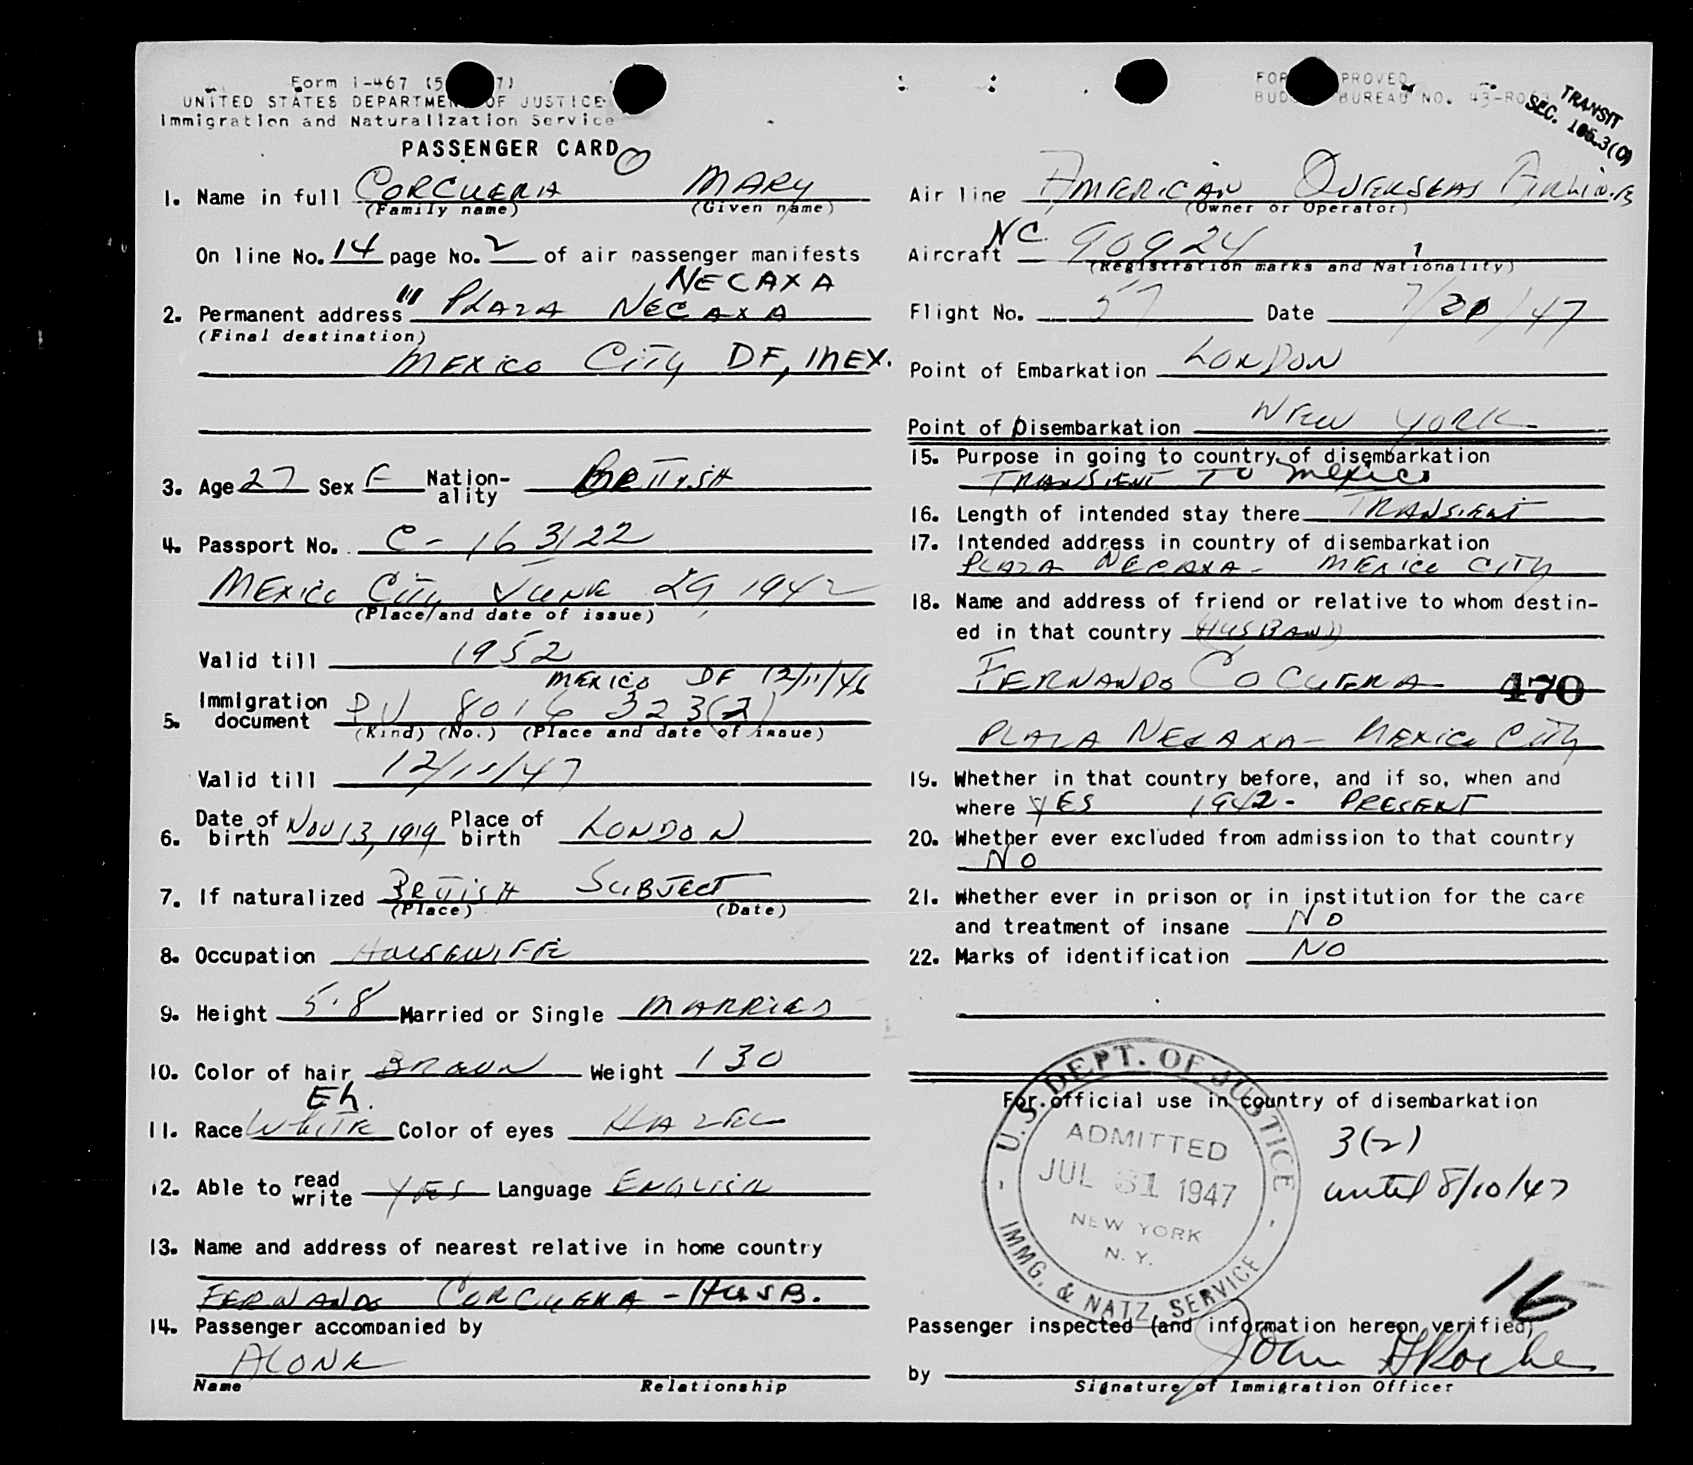 Form I-467 (5 7)
UNITED STATES DEPARTMENT OF JUSTICE
Immigration and Naturalization Service
PASSENGER CARD
1. Name in full CORCUERA MARY
(Family name) (Given name)
On line No. 14 page No. 2 of air passenger manifests
NECAXA
2. Permanent address "" PLAZA NECAXA
(Final destination)
MEXICO CITY DF, MEX.
3. Age 27 Sex F Nation-ality BRITISH
4. Passport No. C-163122
MEXICO CITY JUNE 29, 1942
(Place and date of issue)
Valid till 1952
MEXICO DF 12/11/46
5. Immigration document PV 8016 323(2)
(Kind) (No.) (Place and date of issue)
Valid till 12/15/47
6. Date of birth NOV 13, 1919 Place of birth LONDON
7. If naturalized BRITISH SUBJECT
(Place) (Date)
8. Occupation HOUSEWIFE
9. Height 5.8 Married or Single MARRIED
10. Color of hair BROWN Weight 130
Eh.
11. Race WHITE Color of eyes HAZEL
12. Able to read write YES Language ENGLISH
13. Name and address of nearest relative in home country
FERNANDO CORCUERA - HUSB.
14. Passenger accompanied by
ALONE
Name Relationship
FORM APPROVED
BUDGET BUREAU NO. 43-R0
TRANSIT
SEC. 105.3(0)
Air line AMERICAN OVERSEAS AIRLINES
(Owner or Operator)
Aircraft NC. 90924
(Registration marks and Nationality)
Flight No. 57 Date 7/30/47
Point of Embarkation LONDON
Point of Disembarkation NEW YORK
15. Purpose in going to country of disembarkation
TRANSIENT TO Mexico
16. Length of intended stay there TRANSIENT
17. Intended address in country of disembarkation
PLAZA NECAXA - MEXICO CITY
18. Name and address of friend or relative to whom destin-
ed in that country (HUSBAND)
FERNANDO COCUERA 470
PLAZA NECAXA - MEXICO CITY
19. Whether in that country before, and if so, when and
where YES 1942 - PRESENT
20. Whether ever excluded from admission to that country
NO
21. Whether ever in prison or in institution for the care
and treatment of insane NO
22. Marks of identification NO
For official use in country of disembarkation
U.S. DEPT. OF JUSTICE
ADMITTED
JUL 31 1947
NEW YORK
N. Y.
IMMG. & NATZ. SERVICE
3(2)
until 8/10/47
16
Passenger inspected (and information hereon verified)
by John Roche
Signature of Immigration Officer